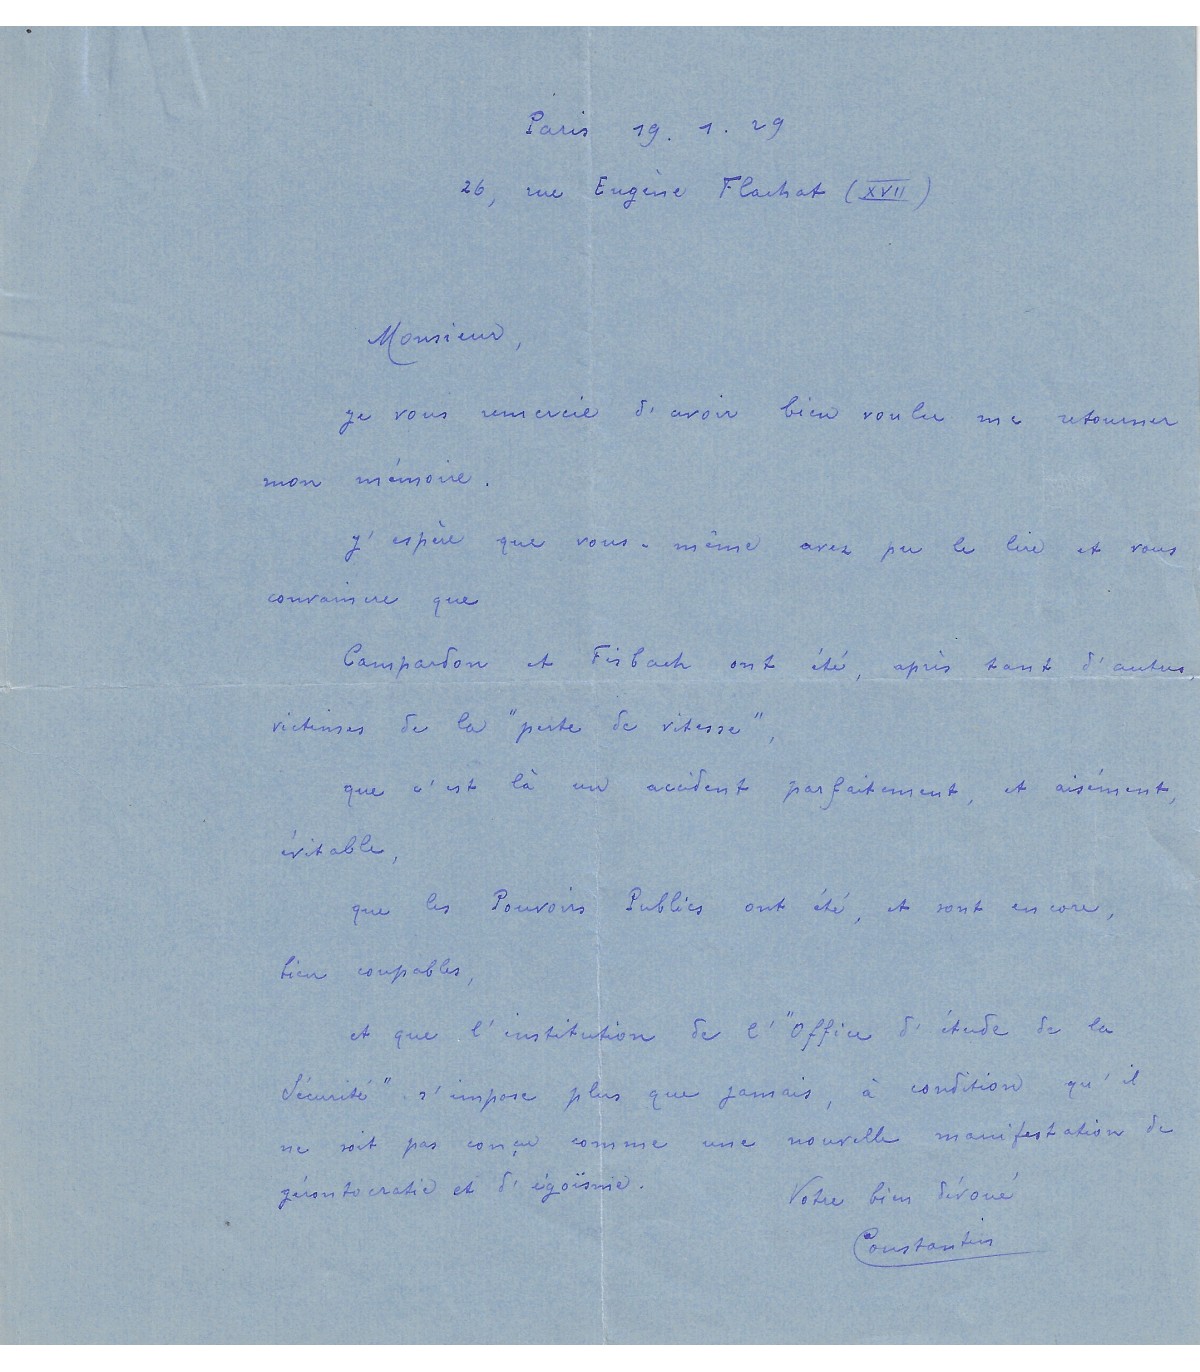 Paris 19. 1. 29
26, rue Eugène Flachat (XVII)
Monsieur,
je vous remercie d'avoir bien voulu me retourner
mon mémoire.
J'espère que vous-même avez pu le lire et vous
convaincre que
Campardon et Fisbach ont été, après tant d'autres,
victimes de la "perte de vitesse",
que c'est là un accident parfaitement, et aisément,
évitable,
que les Pouvoirs Publics ont été, et sont encore,
bien coupables,
et que l'institution de l'"Office d'étude de la
Sécurité" s'impose plus que jamais, à condition qu'il
ne soit pas conçu comme une nouvelle manifestation de
gérontocratie et d'égoïsme.
Votre bien dévoué
Constantin